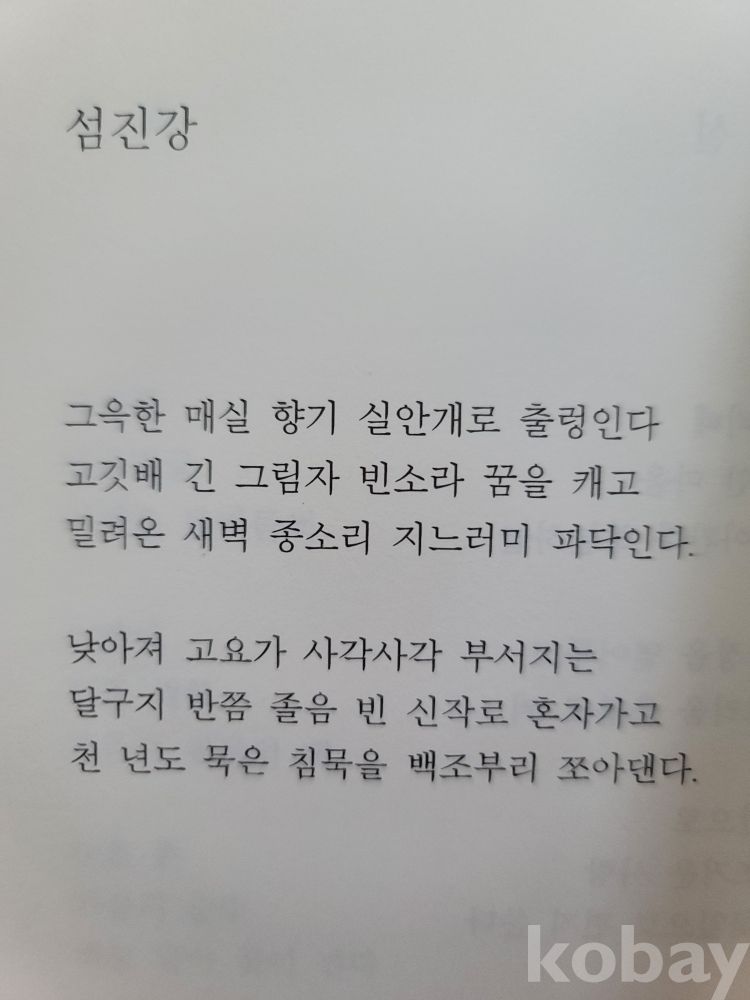 섬진강
그윽한 매실 향기 실안개로 출렁인다
고깃배 긴 그림자 빈소라 꿈을 캐고
밀려온 새벽 종소리 지느러미 파닥인다.
낮아져 고요가 사각사각 부서지는
달구지 반쯤 졸음 빈 신작로 혼자가고
천 년도 묵은 침묵을 백조부리 쪼아댄다.
kobay